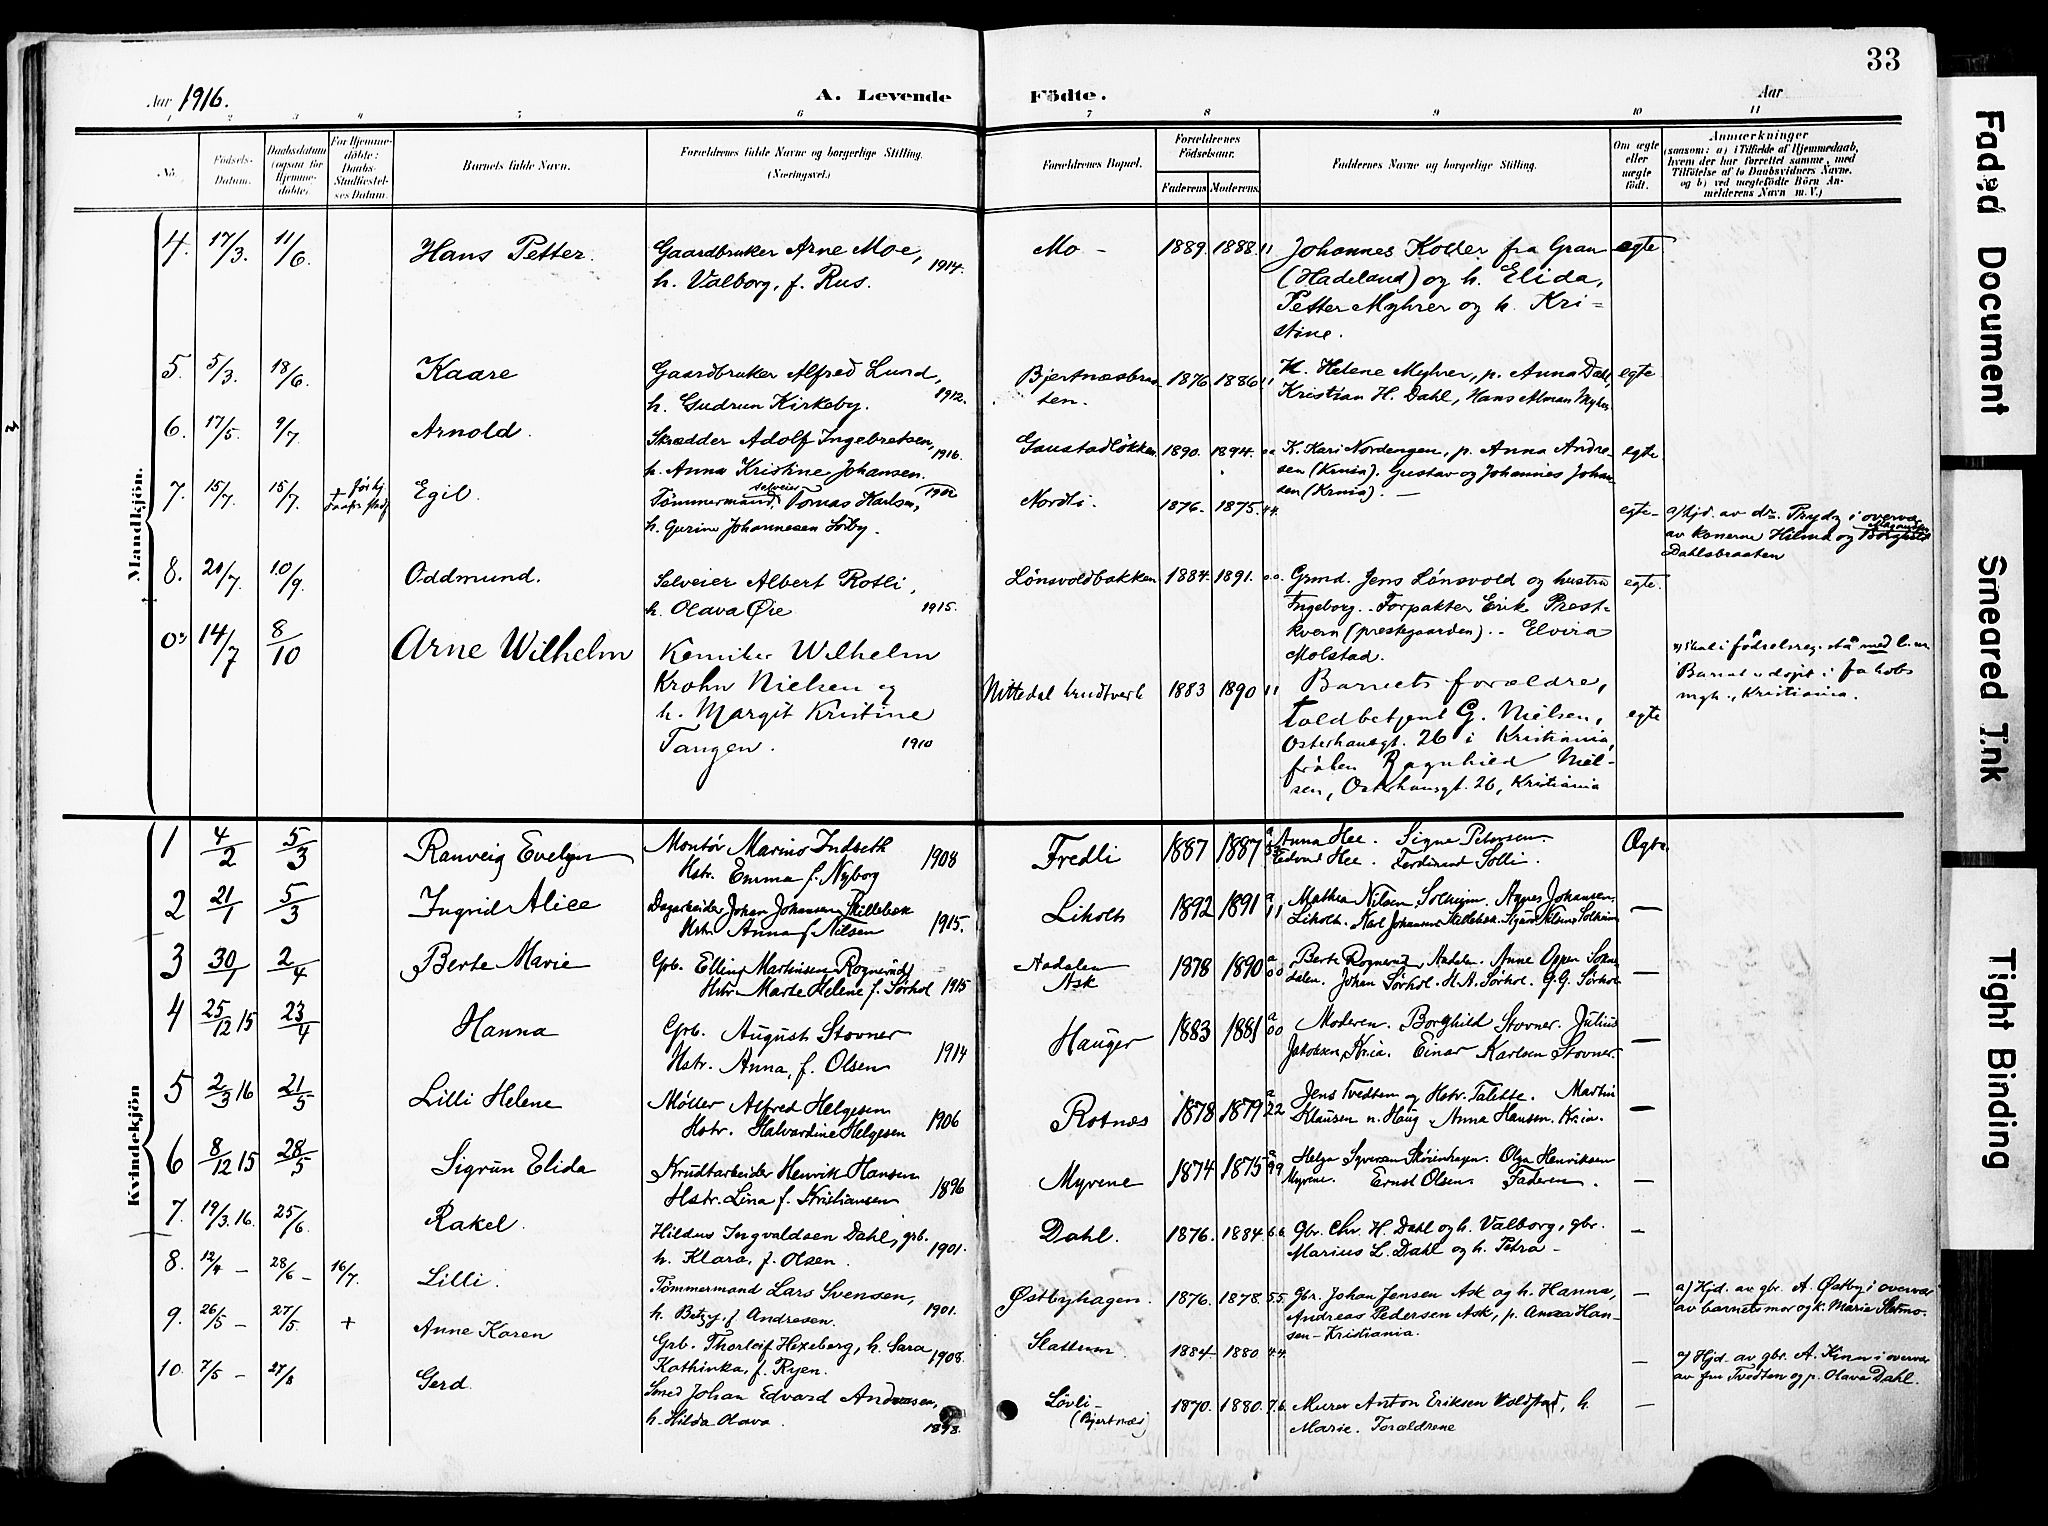 33
Aar 1916.
A. Levende Födte.
Aar
1 2 3 4 5 6 7 8 9 10 11
No.
Födsels-Datum.
Daabsdatum (ogsaa for Hjemmedöbte)
For Hjemmedöbte: Daabs-Stadfæstelses Datum.
Barnets fulde Navn.
Forældrenes fulde Navne og borgerlige Stilling. (Næringsvei.)
Forældrenes Bopæl.
Forældrenes Födselsaar.
Faderens. Moderens.
Faddernes Navne og borgerlige Stilling.
Om ægte eller uægte födt.
Anmærkninger
(saasom: a) i Tilfælde af Hjemmedaab, hvem der har forrettet samme, med Tilföielse af to Daabsvidners Navne, og b) ved uægtefödte Börn Anmelderens Navn m. V.)
Mandkjön.
4. 17/3. 11/6. Hans Petter. Gaardbruker Arne Moe, 1914. Mo - 1889. 1888. 11 Johannes Koller fra Gran egte
h. Valborg, f. Rus. (Hadeland) og h. Elida,
Petter Myhrer og h. Kri=
stine.
5. 5/3. 18/6. Kaare Gaardbruker Alfred Lund, 1912. Bjertnæsbraa 1876 1886 11 K. Helene Myhrer, p. Anna Dahl, egte
h. Gudrun Kirkeby. ten. Kristian H. Dahl, Hans Alman Myhrer
6. 17/5. 9/7. Arnold. Skrædder Adolf Ingebretsen, 1916. Gaustadløkken 1890. 1894. K. Kari Nordengen, p. Anna Andre egte
h. Anna Kristine Johansen. sen (Krnia). Gustav og Johannes Johan
sen (Krnia). —
7. 15/7. 15/7. + Egil. Tømmermand, selveier Tomas Karlsen, 1902 Nordli 1876. 1875. 44. egte- a/hjd. av dr. Prydz i overvær
h. Gurine Johannesen Sørby. av konerne Hilma og Borghild
Dahlsbraaten
8. 21/7. 10/9. Oddmund. Selveier Albert Rotli, Lønsvoldbakken 1884. 1891. 00. Grmd. Jens Lønsvold og hustru egte.
h. Olava Øie 1915. Ingeborg. - Forpakter Erik Prest-
kvern (prestegaarden). - Elvira
Molstad.
14/7 8/10 Arne Wilhelm Kemiker Wilhelm
Krohn Nielsen og Nittedal krudtverk 1883 1890 11 Barnets forældre,
h. Margit Kristine toldbetjent G. Nielsen, egte
Tangen. 1910 Osterhausgt. 26 i Kristiania,
frøken Ragnhild Niel-
sen, Osterhausgt. 26, Kristiania
i fødselsreg. stå med
Barnet døpt i Jakobs
mgh., Kristiania.
Kvindekjön
1 4/2 5/3 Ranveig Evelyn Montør Marino Indseth 1908 Fredli 1887 1887 Anna Hee. Signe Petersen. Ægte
Hstr. Emma f. Nyborg Edvard Hee. Ferdinand Solli.
2 21/1 5/3 Ingrid Alice Dagarbeider Johan Johansen Skillebæk 1915. Liholt 1892 1891 a 11 Mathea Nilsen Solheim. Agnes Johansen. —
Hstr. Anna f. Nilsen Liholt. Karl Johansen Skillebæk. Sigurd Nilsen Solheim
3 30/1 2/4 Berte Marie Grb. Elling Martinsen Rognerud 1915 Aadalen 1878 1890 a 00 Berte Rognerud, Aadalen. Anne Oppen Sokne —
Hstr. Marte Helene f. Sørhol Ask dalen. Johan Sørhol. M. A. Sørhol. G. G. Sørhol
4 25/12 15 23/4 Hanna Grb. August Stovner 1914 Hauger 1883 1881 a 00 Moderen. Borghild Stovner. Julius —
Hstr. Anna, f. Olsen Jakobsen, Kria. Einar Karlsen Stovner.
5 2/3 16 21/5 Lilli Helene Møller Alfred Helgesen 1906 Rotnæs 1878 1879 a 22 Jens Tvedten og Hstr. Talette. Martin —
Hstr. Halvardine Helgesen Klausen n. Haug. Anna Hansen. Kria.
6 8/12 15 28/5 Sigrun Elida Krudtarbeider Henrik Hansen 1896 Myrene 1874 1875 99 Helga Syversen. Olga Henriksen —
Hstr. Lina f. Kristiansen Myrene. Ernst Olsen. Faderen.
7. 19/3. 16. 25/6. Rakel. Hildus Ingvaldsen Dahl, grb. 1901. Dahl. 1876. 1884. 66. Gbr. Chr. H. Dahl og h. Valborg, gbr. —
h. Klara, f. Olsen. Marius L. Dahl og h. Petra -
8. 12/4 — 28/6 — 16/7. Lilli. Tømmermand Lars Svensen, 1901. Østbyhagen. 1876. 1878. 55. Gbr. Johan Jensen Ask og h. Hanna, — a) Hjd. av gbr. A. Østby i overvær
h. Betzy, f. Andresen. Andreas Pedersen Ask, p. Anna Han- av barnets mor og k. Marie
sen - Kristiania.
9. 26/5 — 27/5. + Anne Karen Grb. Thorleif Hexeberg, h. Sara 1908. Slattum. 1884. 1880 44. — a) Hjd. av gbr. A. i overvær
Kathinka, f. Ryen. av fru Tvedten og p. Olava Dahl.
10. 7/5 — 27/8 Gerd. Smed Johan Edvard Andreasen, Løvli - 1870. 1880. 76. Murer Anton Eriksen Voldstad, h. —
h. Hilda Olava. 1898. (Bjertnæs) Marie. Forældrene
Faded Document
Smeared Ink
Tight Binding